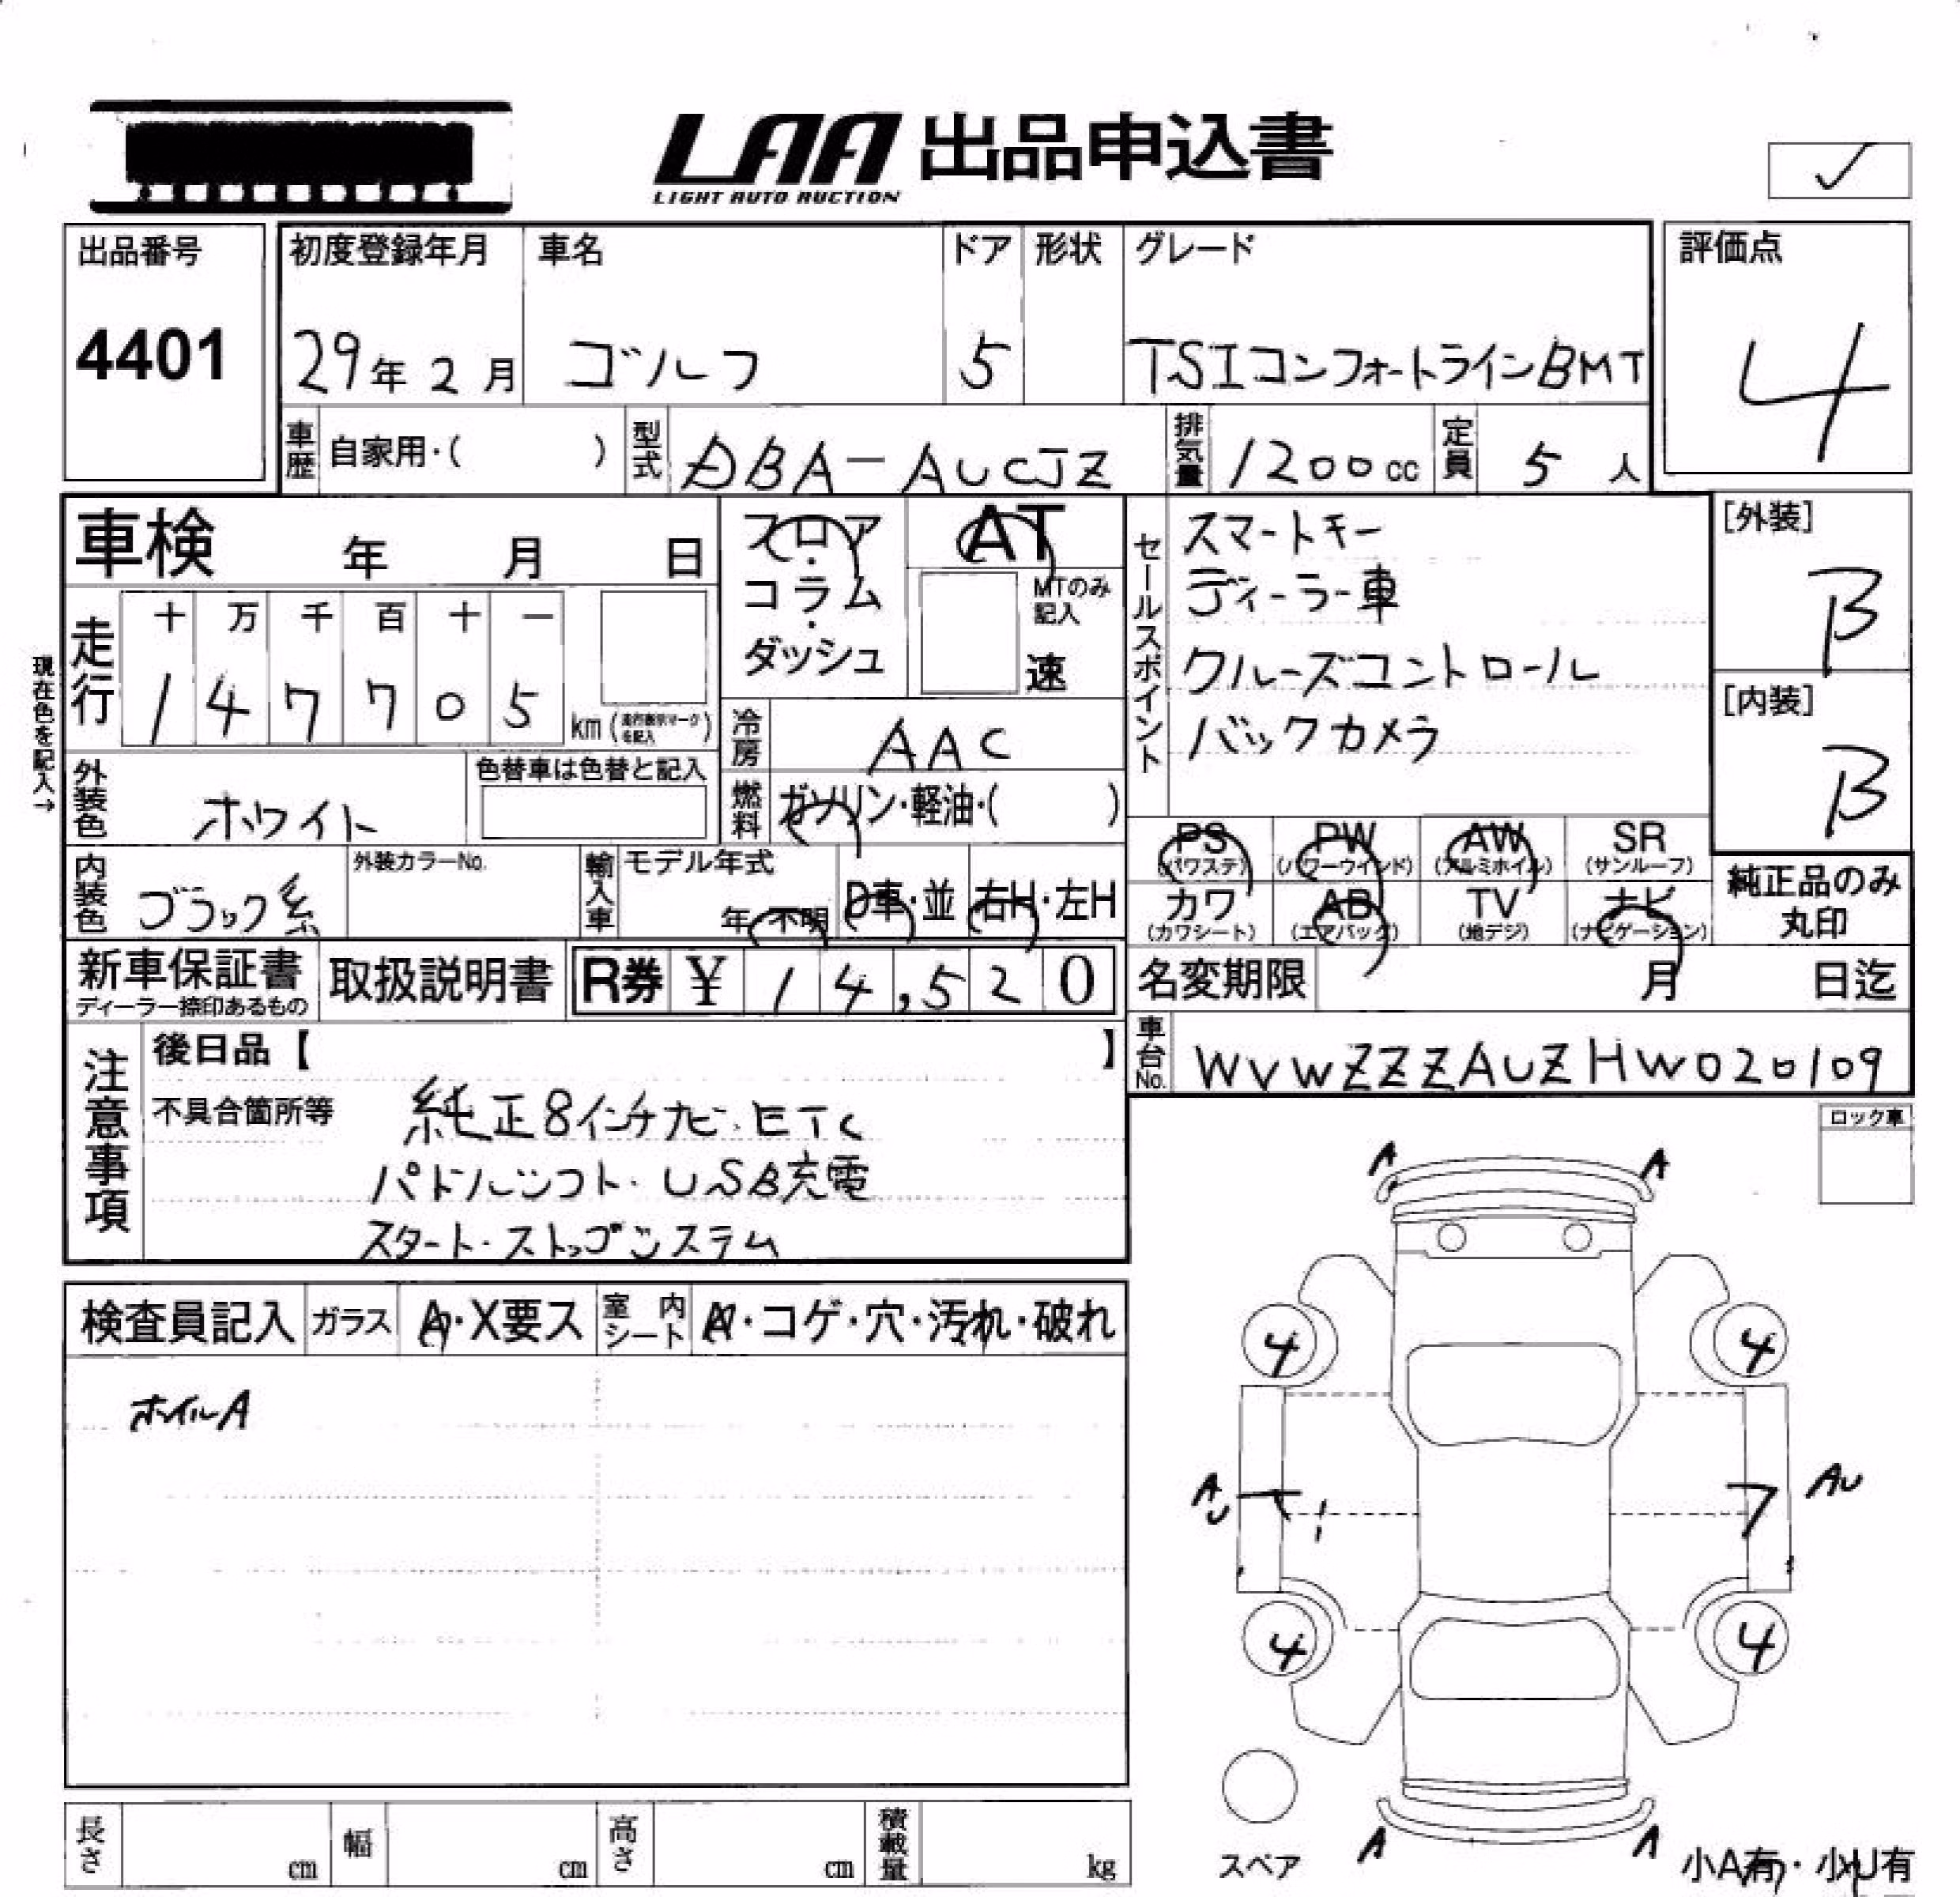 LAA 出品申込書
LIGHT AUTO AUCTION
出品番号
4401
初度登録年月
29年 2月
車名
ゴルフ
ドア
5
形状
グレード
TSIコンフォートラインBMT
評価点
4
車歴
自家用・( )
型式
DBA-AUCJZ
排気量
1200cc
定員
5人
車検 年 月 日
フロア・コラム・ダッシュ
AT
MTのみ記入
速
セールスポイント
スマートキー
ディーラー車
クルーズコントロール
バックカメラ
[外装]
B
[内装]
B
現在色を記入→
走行
十 万 千 百 十 一
1 4 7 7 0 5
km (走行表示マークを記入)
冷房
AAC
外装色
ホワイト
色替車は色替と記入
燃料
ガソリン・軽油・( )
PS (パワステ)
PW (パワーウインド)
AW (アルミホイル)
SR (サンルーフ)
カワ (カワシート)
AB (エアバック)
TV (地デジ)
ナビ (ナビゲーション)
純正品のみ
丸印
内装色
ブラック系
外装カラーNo.
輸入車
モデル年式
年・不明
D車・並
右H・左H
新車保証書
ディーラー捺印あるもの
取扱説明書
R券 ¥ 14,520
名変期限 月 日迄
車台No.
WVWZZZAUZHW020109
注意事項
後日品【 】
不具合箇所等
純正8インチナビ・ETC
パドルシフト・USB充電
スタート・ストップシステム
ロック車
A A
検査員記入
ガラス
A・X要ス
室内シート
A・コゲ・穴・汚れ・破れ
ホイルA
4 4
AU AU
4 4
スペア
A A
小A有・小U有
長さ cm
幅 cm
高さ cm
積載量 kg